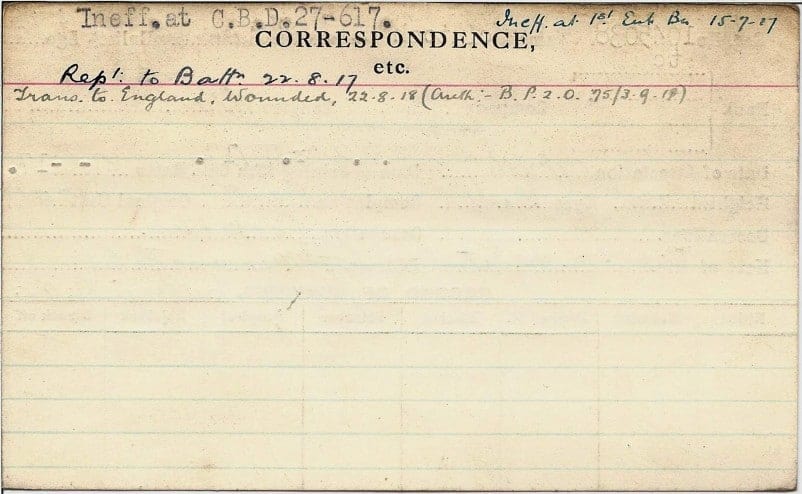 Ineff.at C.B.D.27-617. Ineff. at 1st Ent Bn 15-7-17
CORRESPONDENCE,
etc.
Rept. to Battn 22.8.17
Trans. to England, Wounded, 22-8-18 (Auth:- B.P.2.O. 75/3-9-18)